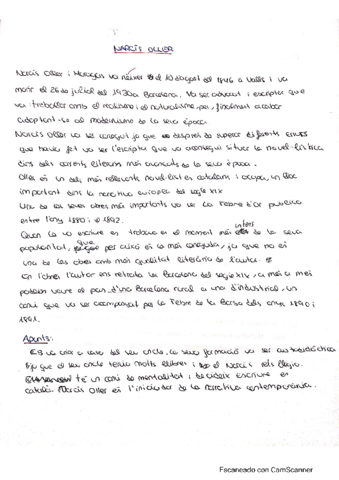 NARCÍS OLLER
Narcís Oller i Moragas va néixer el 10 d'agost del 1846 a Valls i va
morir el 26 de juliol del 1930 a Barcelona. Va ser advocat i escriptor que
va treballar amb el realisme i el naturalisme, per, finalment acabar
adaptant-se al modernisme de la seva època.
Narcís Oller va ser conegut ja que després de superar diferents
que havia fet va ser l'escriptor que va aconseguir situar la novel·lística
dins dels corrents literaris més avançats de la seva època.
Oller és un dels més rellevants novel·listes catalans i ocupa, un lloc
important dins la narrativa europea del segle XIX
Una de les seves obres més importants va ser La Febre d'Or publicada
entre l'any 1890 i el 1892.
Quan la va escriure es trobava en el moment més intens de la seva
popularitat, que per això és la més coneguda, ja que no és
una de les obres amb més qualitat literària de l'autor.
En l'obra l'autor ens retrata la Barcelona del segle XIX, a més a més
podem veure el pas d'una Barcelona rural a una d'industrial, un
canvi que va ser acompanyat per la Febre de la Borsa dels anys 1890 i
1891.
Apunts:
Es va criar a casa del seu oncle, la seva formació va ser autodidàctica
ja que el seu oncle tenia molts llibres i Narcís els llegia.
té un canvi de mentalitat i decideix escriure en
català. Narcís Oller és l'iniciador de la narrativa contemporània.
Escaneado con CamScanner